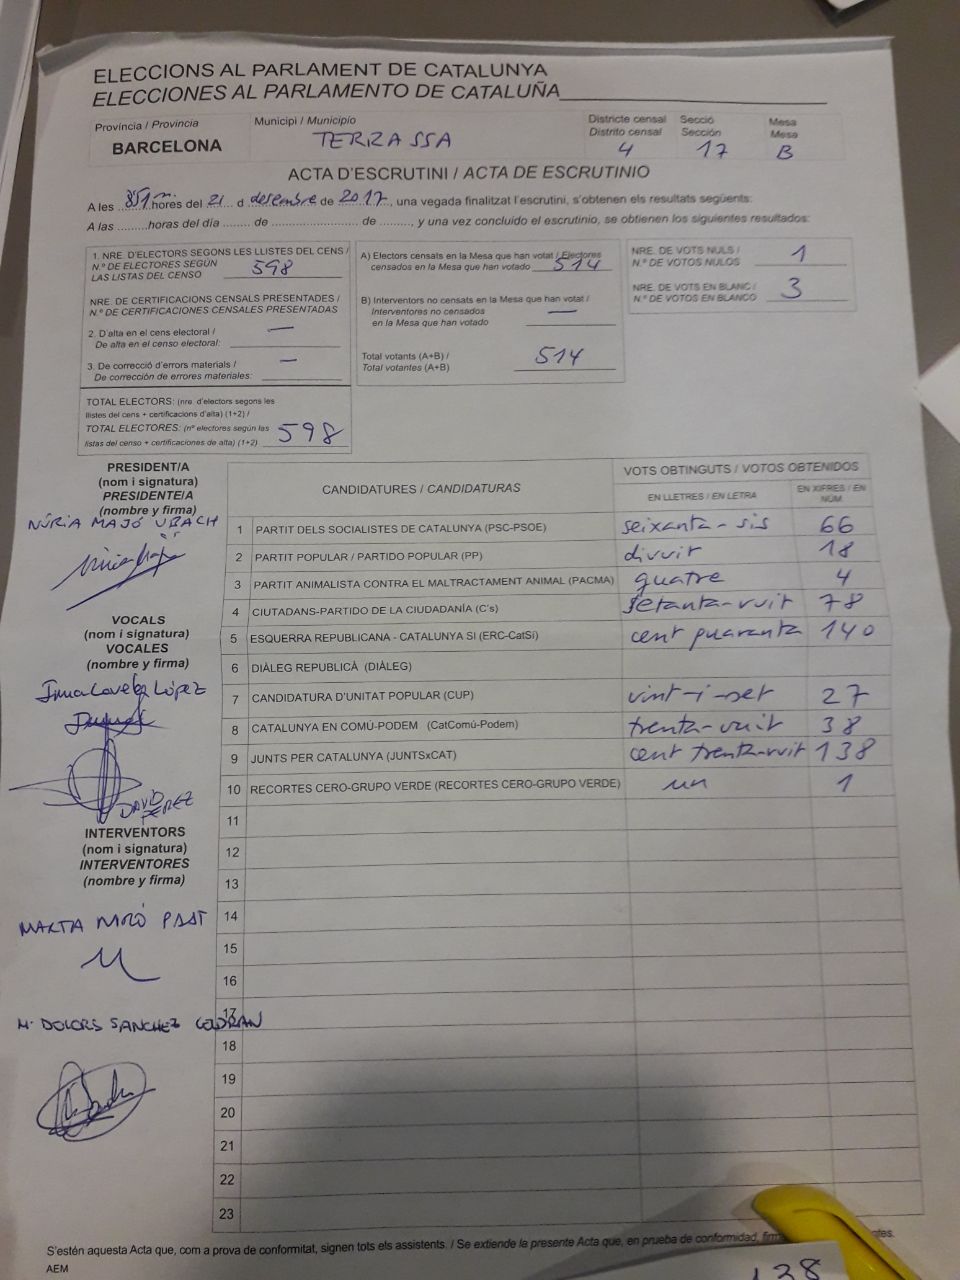 ELECCIONS AL PARLAMENT DE CATALUNYA
ELECCIONES AL PARLAMENTO DE CATALUÑA
Província / Provincia
BARCELONA
Municipi / Municipio
TERRASSA
Districte censal
Distrito censal
4
Secció
Sección
17
Mesa
Mesa
B
ACTA D'ESCRUTINI / ACTA DE ESCRUTINIO
A les ......... hores del 21 d desembre de 2017, una vegada finalitzat l'escrutini, s'obtenen els resultats següents:
A las .........horas del día ........ de ........................ de ........, y una vez concluido el escrutinio, se obtienen los siguientes resultados:
1. NRE. D'ELECTORS SEGONS LES LLISTES DEL CENS /
N.º DE ELECTORES SEGÚN
LAS LISTAS DEL CENSO
598
NRE. DE CERTIFICACIONS CENSALS PRESENTADES /
N.º DE CERTIFICACIONES CENSALES PRESENTADAS
2. D'alta en el cens electoral /
De alta en el censo electoral: —
3. De correcció d'errors materials /
De corrección de errores materiales: —
TOTAL ELECTORS: (nre. d'electors segons les
llistes del cens + certificacions d'alta) (1+2) /
TOTAL ELECTORES: (nº electores según las
listas del censo + certificaciones de alta) (1+2)
598
A) Electors censats en la Mesa que han votat / Electores
censados en la Mesa que han votado 514
B) Interventors no censats en la Mesa que han votat /
Interventores no censados
en la Mesa que han votado —
Total votants (A+B) /
Total votantes (A+B)
514
NRE. DE VOTS NULS /
N.º DE VOTOS NULOS
1
NRE. DE VOTS EN BLANC /
N.º DE VOTOS EN BLANCO
3
PRESIDENT/A
(nom i signatura)
PRESIDENTE/A
(nombre y firma)
NÚRIA MAJÓ UBACH
VOCALS
(nom i signatura)
VOCALES
(nombre y firma)
López
DAVID
PEREZ
INTERVENTORS
(nom i signatura)
INTERVENTORES
(nombre y firma)
MARTA MIRÓ
Mª DOLORS SANCHEZ
CANDIDATURES / CANDIDATURAS
VOTS OBTINGUTS / VOTOS OBTENIDOS
EN LLETRES / EN LETRA
EN XIFRES / EN NÚM.
1 PARTIT DELS SOCIALISTES DE CATALUNYA (PSC-PSOE) seixanta-sis 66
2 PARTIT POPULAR / PARTIDO POPULAR (PP) divuit 18
3 PARTIT ANIMALISTA CONTRA EL MALTRACTAMENT ANIMAL (PACMA) quatre 4
4 CIUTADANS-PARTIDO DE LA CIUDADANÍA (C's) setanta-vuit 78
5 ESQUERRA REPUBLICANA - CATALUNYA SI (ERC-CatSí) cent quaranta 140
6 DIÀLEG REPUBLICÀ (DIÀLEG)
7 CANDIDATURA D'UNITAT POPULAR (CUP) vint-i-set 27
8 CATALUNYA EN COMÚ-PODEM (CatComú-Podem) trenta-vuit 38
9 JUNTS PER CATALUNYA (JUNTSxCAT) cent trenta-vuit 138
10 RECORTES CERO-GRUPO VERDE (RECORTES CERO-GRUPO VERDE) un 1
11
12
13
14
15
16
17
18
19
20
21
22
23
S'estén aquesta Acta que, com a prova de conformitat, signen tots els assistents. / Se extiende la presente Acta que, en prueba de conformidad,
AEM